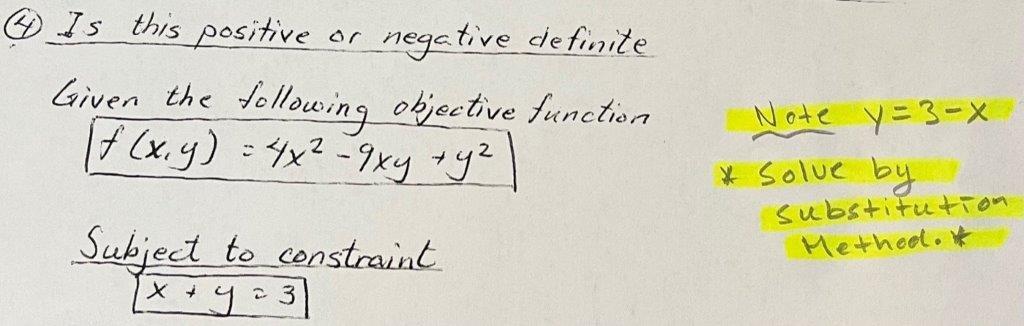 ④ Is this positive or negative definite
Given the following objective function
f(x,y) = 4x² - 9xy + y²
Subject to constraint
x + y = 3
Note y=3-x
* Solve by
substitution
Method. *